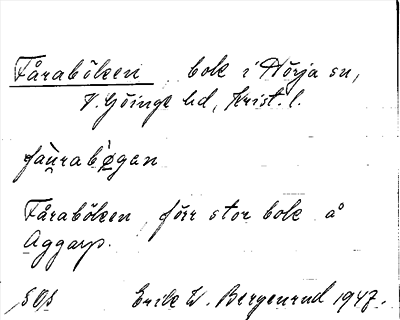 Fåraböken, bok i Hörja sn,
V. Göinge hd, Krist. l.
fàu̯rabø̀gan
Fåraböken, förr stor bok å
Aggarp.
Erik W. Bergenrud 1947.